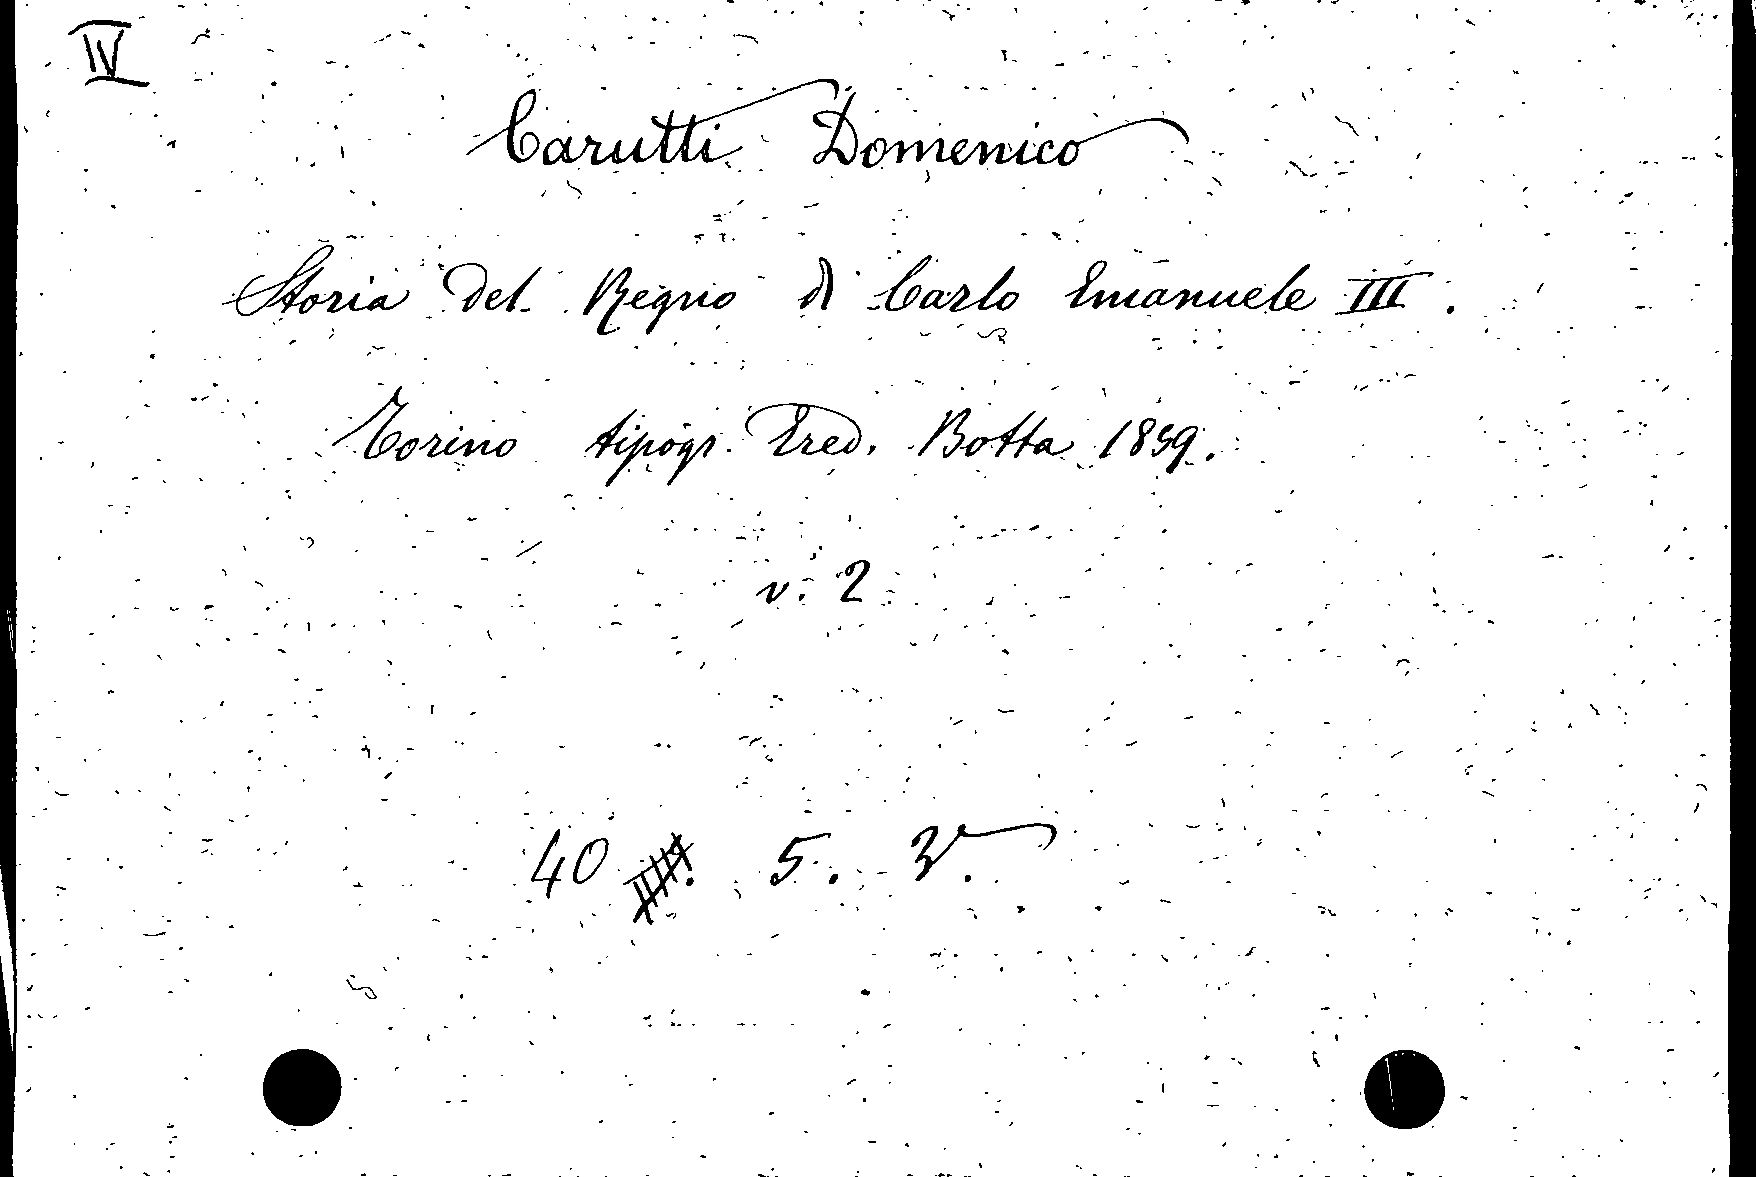 IV
Carutti Domenico
Storia del Regno di Carlo Emanuele III.
Torino tipogr. Ered. Botta 1859.
v. 2
40 5. 3.